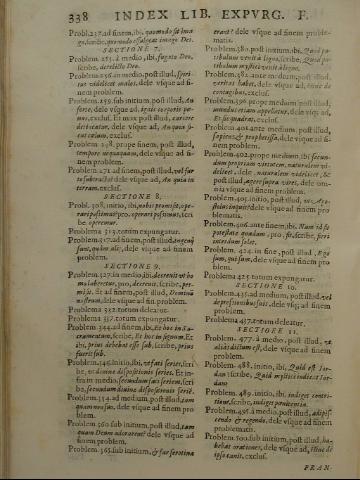 338 INDEX LIB. EXPVRG. F.
Problem. 237. ad finem, ibi, quomodo sit ima
go, scribe, quomodo effulgeat imago Dei.
SECTIONE 7.
Problem. 253. à medio, ibi, fugito Deo,
scribe, derelicto Deo.
Problem. 256. in medio, post illud, spiri-
tus videlicet males. dele vsque ad fi-
nem problem.
Problem. 259. sub initium, post illud, An
forte, dele vsque ad,
mus, exclus. Et max post illud, carere
delectatur, dele vsque ad, An quia si-
cut cœlum, exclus.
Problem. 268. prope finem, post illud,
tempore nequaquam, dele vsque ad fi-
nem problem.
Problem. 271. ad finem, post illud, vel fur
to subtracta? dele vsque ad, An quia in
terram. exclus.
SECTIONE 8.
Probl. 308. initio, ibi, nobis promisit, ope-
rari possimus? pro, operari possimus, scri
be, operemur.
Problema 313. totum expungatur.
Problem. 317. ad finem, post illud,
sunt, quàm alie, dele vsque ad finem
problem.
SECTIONE 9.
Problem. 327. in medio, ibi, decrevit vt ho
mo laberetur, pro, decrevit, scribe, per-
misit. & ad finem, post illud, Domini
nostrum, dele vsque ad fin. problem.
Problema 332. totum deleatur.
Problema 337. totum expungatur.
Problem. 344. ad finem, ibi, Et hoc in Sa-
cramentum, scribe, Et hoc in signum. Et
ibi, prius debebat esse sub, scribe, prius
fuerit sub.
Problem. 346. initio, ibi, vt fati series, scri
be, vt divinæ dispositionis series. Et in-
fra in medio, secundum fati seriem, scri
be, secundum divinæ dispositionis serie.
Problem. 354. ad medium, post illud, tam
quam mensas, dele vsque ad finem pro
blem.
Problem. 360. sub initium, post illud, tam
quam Deum adorarent? dele vsque ad
finem problem.
Problem. 365. sub initium, & sue serotina
erant? dele vsque ad finem proble-
matis.
Problem. 380. post initium, ibi, Quid pa-
tibulum venit à ligno, scribe, Quid pa-
tibulum mystice venit à ligno.
Problem. 382. ante medium, post illud,
gereres habet, dele vsque ad,
contagibus, exclus.
Problem. 396. prope medium, post illud,
inductucium appelletur, dele vsque ad,
Et sic quadras, exclus.
Problem. 401. ante medium, post illud,
sapientes & prophetissa, dele vsque ad fi-
nem problem.
Problem. 402. prope medium, ibi, secun-
dum propriam virtutem, naturalem vi-
delicet, dele, naturalem videlicet, &
post illud, agere supra vires, dele om-
nia vsque ad finem problem.
Problem. 405. initio, post illud,
dele vsque ad finem pro
blematis.
Problem. 406. ante finem, ibi, Nam id fa
potestate quadam, pro, fit, scribe, fieri
interdum solet.
Problem. 412. in fine, post illud, Ego
sum, qui sum, dele vsque ad finem pro
blem.
Problema 425. totum expungatur.
SECTIONE 10.
Problem. 435. ad medium, post illud, vel
depressionibus suis, deleg vsque ad finem
problem.
Problema 457. totum deleatur.
SECTIONE 11.
Problem. 477. à medio, post illud, vt
dictum est, dele vsque ad finem
problem.
Problem. 488. initio, ibi, Quid est Ior-
dan? scribe, Quid mystice indicat Ior-
dan?
Problem. 489. initio, ibi, indiget conti-
tione, scribe, indiget pœnitentia.
Problem. 496. à medio, post illud, adipis-
cendo & regendo, dele vsque ad finem
problematis.
Problem. 500. sub initium, post illud, ha-
bebat orationes, dele vsque ad,
ipsa tanit, exclus.
FRAN-